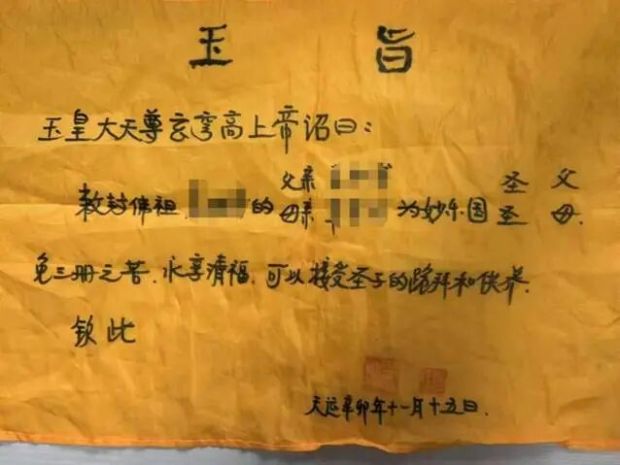 玉旨
玉皇大天尊玄弯高上帝诏曰：
父亲 圣父
敕封佛祖 的 母亲 为妙乐国 圣母.
免三册之苦.永享清福.可以接受圣子的跪拜和供养.
钦此
天运辛卯年十一月十五日.